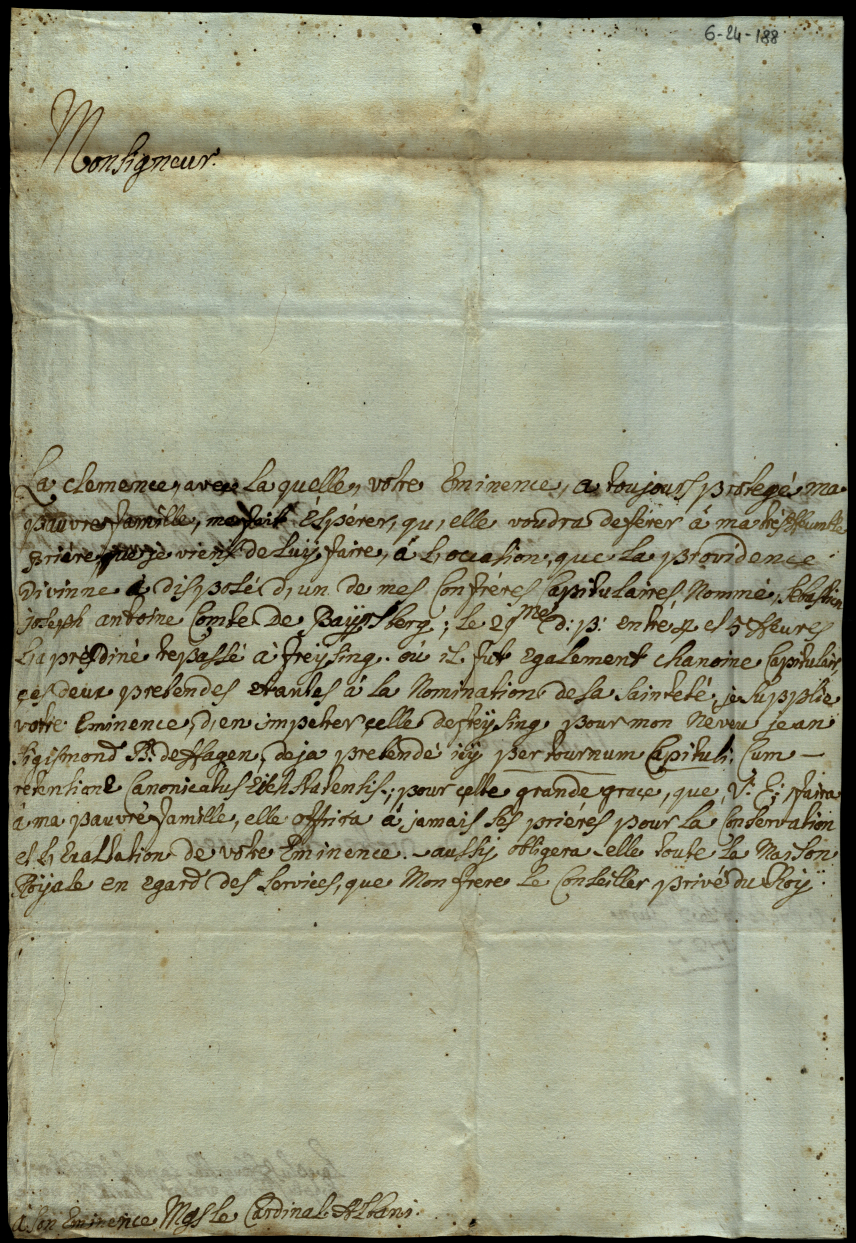 6-24-188
Monsigneur.
La clemence, avec la quélle, votre Eminence, a toujours protegé ma
pauvre famille, me fait Espérer, qu, elle voudra deférer á ma
priére, que je viens de luÿ faire, á L'occasion, que la providence
Divinne á disposé d'un de mes Confréres Capitulaires Nommé, Sebastien
joseph antoine Comte De ; Le 29me d: p: entre 4 et 5 Heures
L'aprésdiné trepassé à freÿsing. oú il fut egalement chanoine Capitulair,
ces deux prebendes etantes á la Nomination de sa Sainteté, je supplie
votre Eminence, d'en impetrer celle de freÿsing pour mon Neveu jean
Sigismond B: de Hagen, deja prebendé icÿ per turnum Capituli, Cum —
retentione Canonicatus Eichstatensis, pour cette grande grace, que, V: E: faira
á ma pauvre famille, elle offrira á jamais ses priéres pour la Conservation
et L'Exaltation de votre Eminence. – aussÿ obligera-elle toute La Maison
Roÿale en egard des Services, que Mon frere Le Conseiller privé du Roÿ
á Son Eminence Mgr le Cardinal Albani.